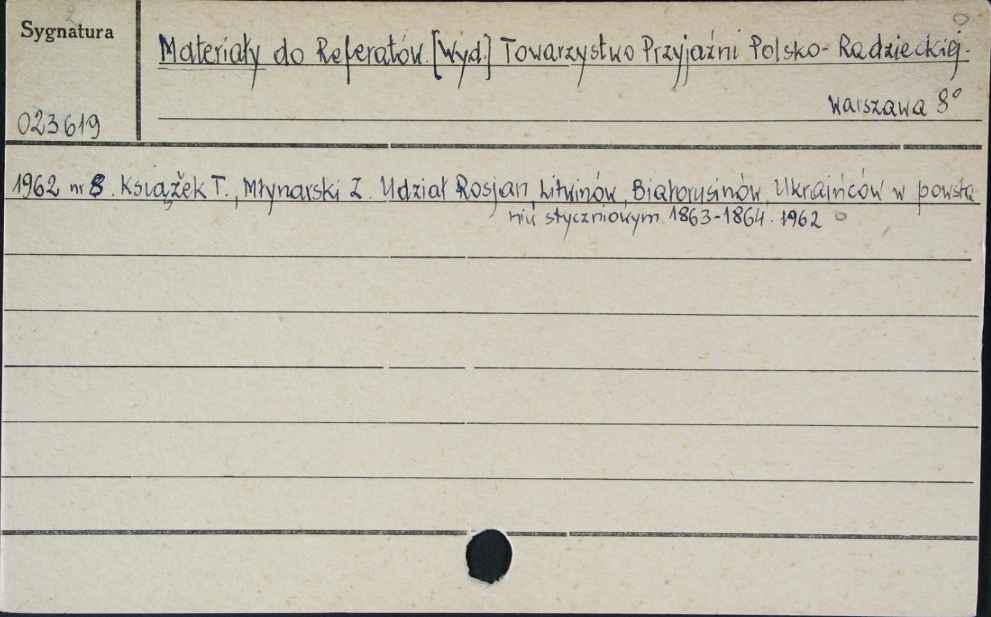 Sygnatura
Materiały do Referatów. [Wyd.] Towarzystwo Przyjaźni Polsko-Radzieckiej.
Warszawa 8°
023619
1962 nr 8. Książek T., Młynarski Z. Udział Rosjan, Litwinów, Białorusinów, Ukraińców w powsta
niu styczniowym 1863-1864. 1962